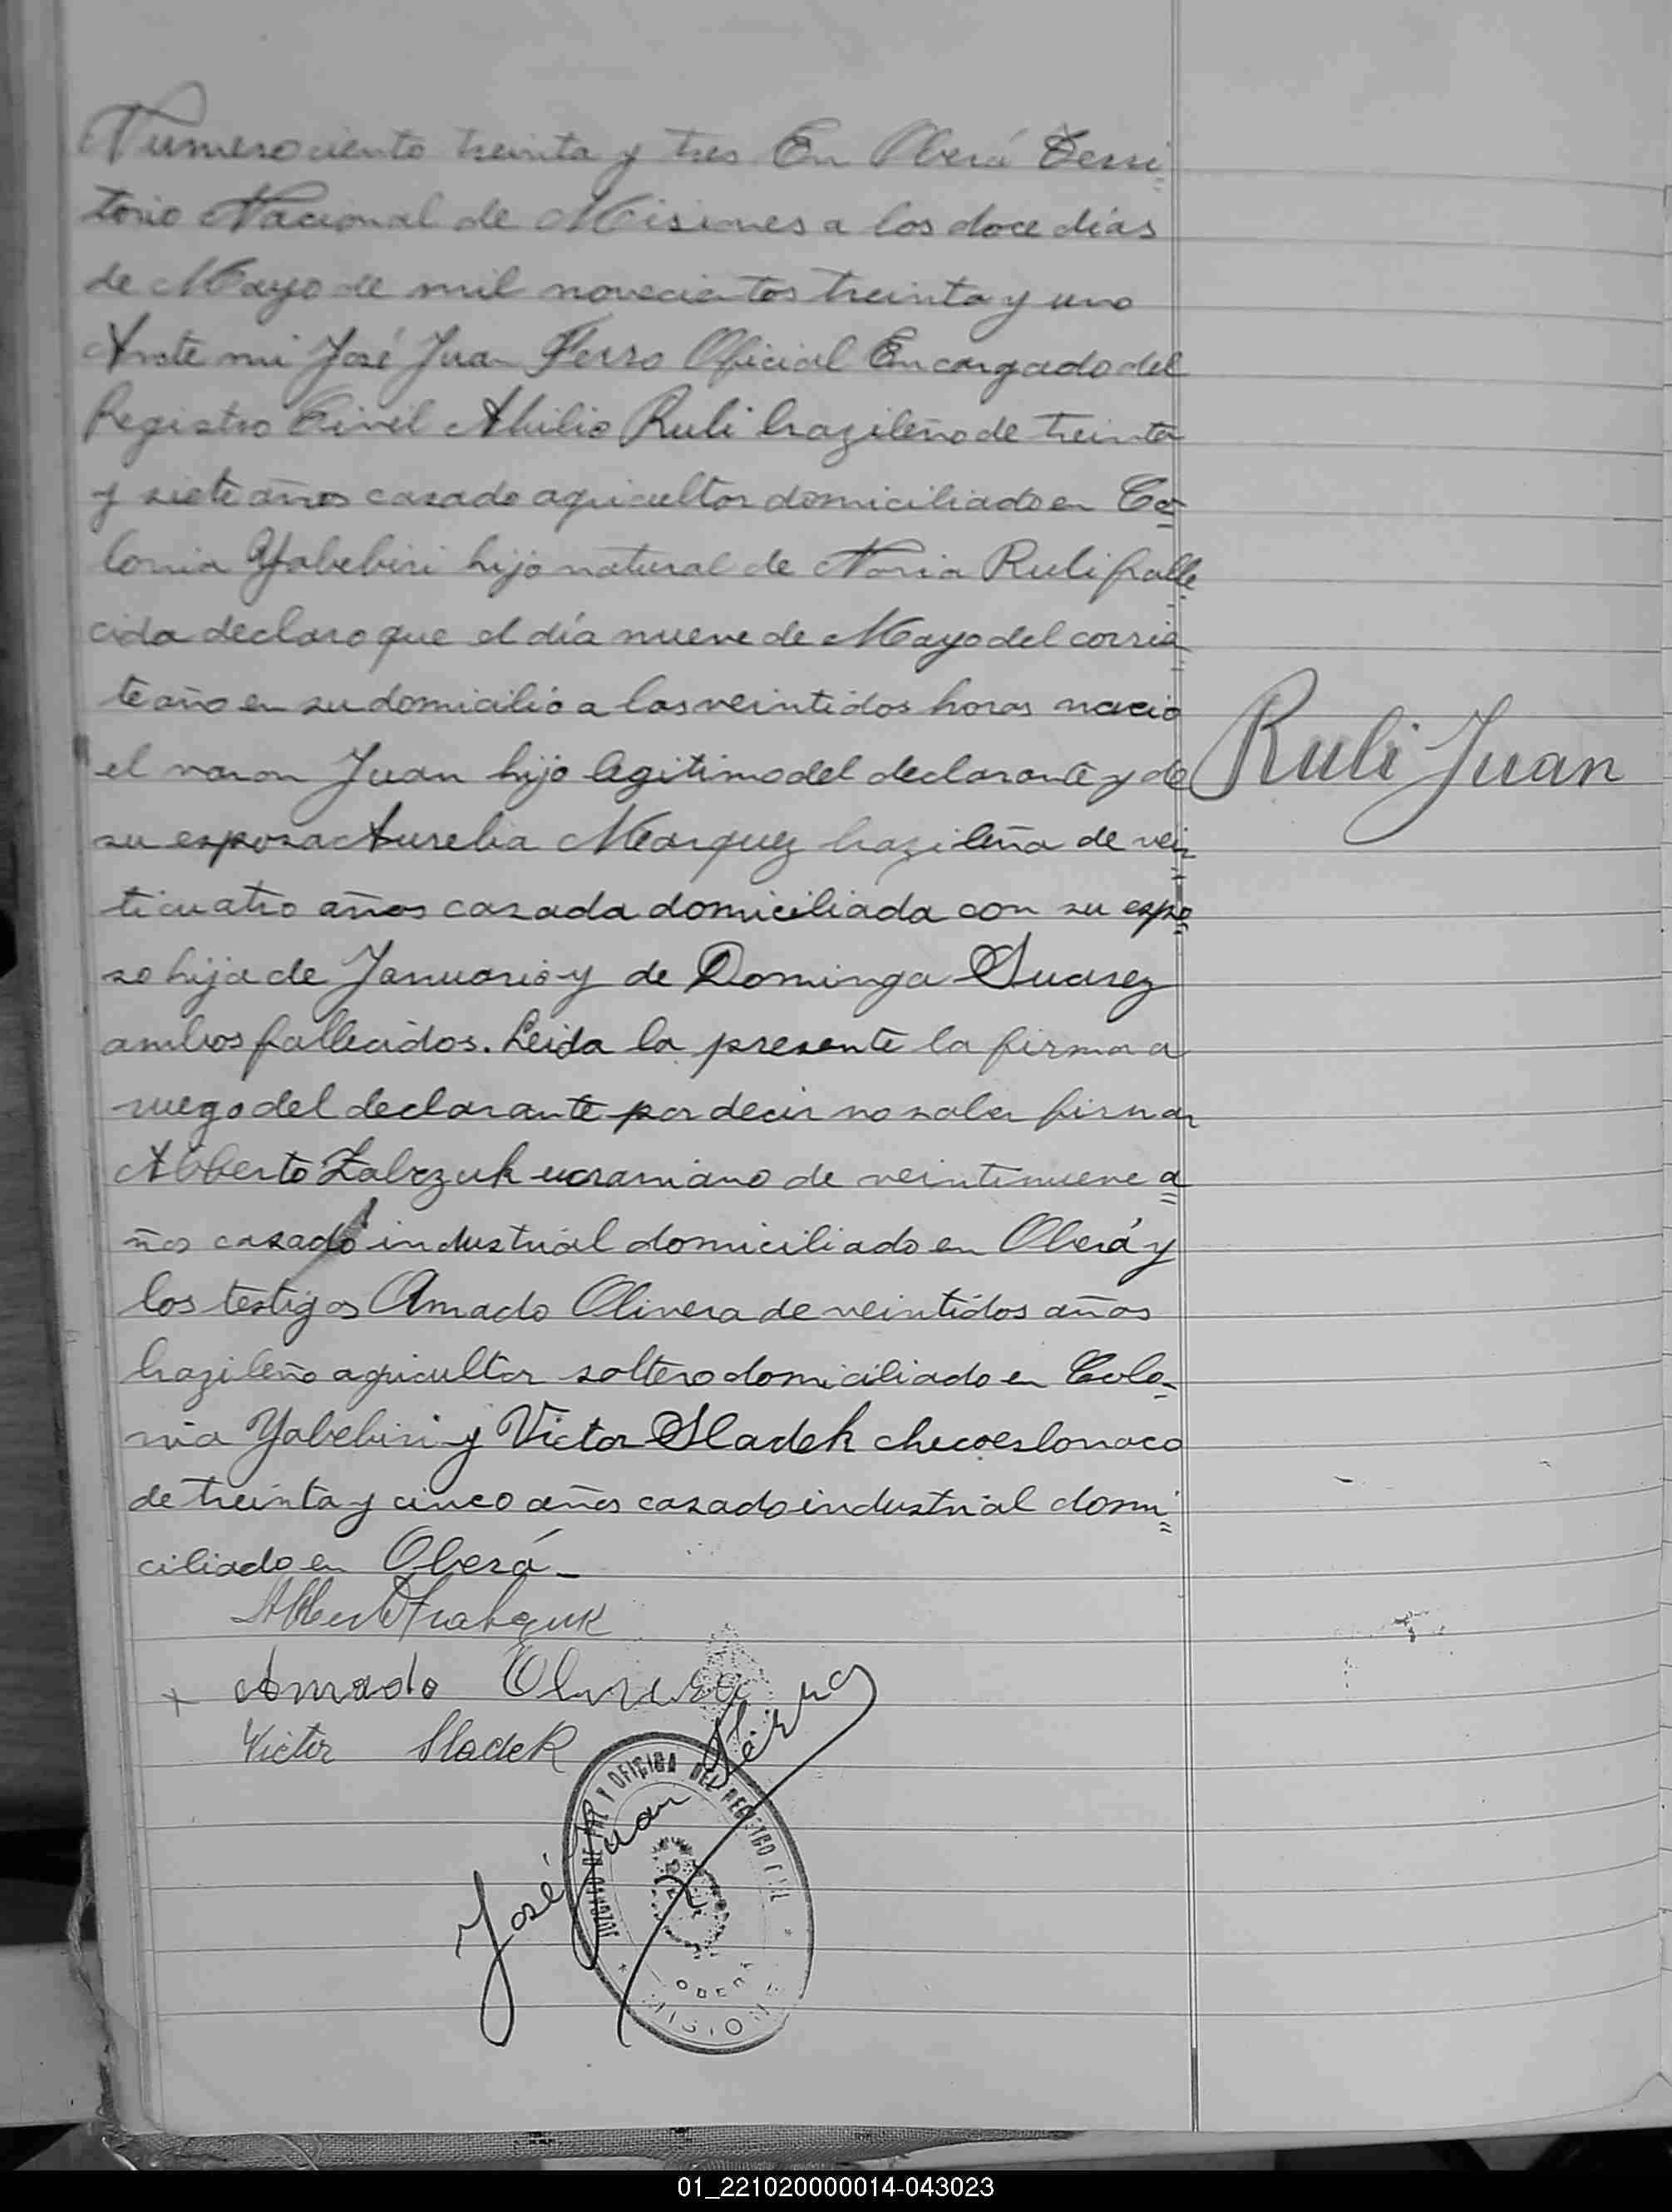 Numero ciento treinta y tres En Oberá Terri=
torio Nacional de Misiones a los doce dias
de Mayo de mil novecientos treinta y uno
Ante mi José Juan Ferro Oficial Encargado del
Registro Civil Abilio Ruli brazileño de treinta
y siete años casado agricultor domiciliado en Co=
lonia Yabebiri hijo natural de Noria Ruli falle=
cida declaro que el día nueve de Mayo del corrien=
te año en su domicilio a las veintidos horas nacio
el varon Juan hijo legitimo del declarante y de
su esposa Aurelia Marquez brazileña de vein=
ticuatro años casada domiciliada con su espo=
so hija de Januario y de Dominga Suarez
ambos fallecidos. Leida la presente la firma a
ruego del declarante por decir no saber firmar
Alberto Zabczuk ucraniano de veintinueve a=
ños casado industrial domiciliado en Oberá y
los testigos Amado Olivera de veintidos años
brazileño agricultor soltero domiciliado en Colo=
nia Yabebiri y Victor Sladek checoeslovaco
de treinta y cinco años casado industrial domi=
ciliado en Oberá -
Ruli Juan
Amado Olivera
Victor Sladek
José Juan Ferro
JUZGADO DE PAZ Y OFICINA DEL REGISTRO CIVIL
OBERA
MISIONES
01_221020000014-043023